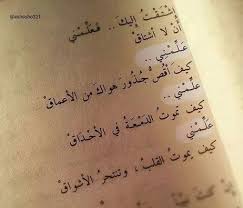 @eshosho321
اِشْتَقْتُ إليكَ .. فَعَلِّمْني
أنْ لا أشتاقْ
عَلِّمْني ..
كيفَ أقُصُّ جُذُورَ هواكَ مِنَ الأعماقْ
عَلِّمْني
كيفَ تموتُ الدمْعَةُ في الأحداقْ
عَلِّمْني
كيفَ يموتُ القلبُ ، وتنتحرُ الأشواقْ